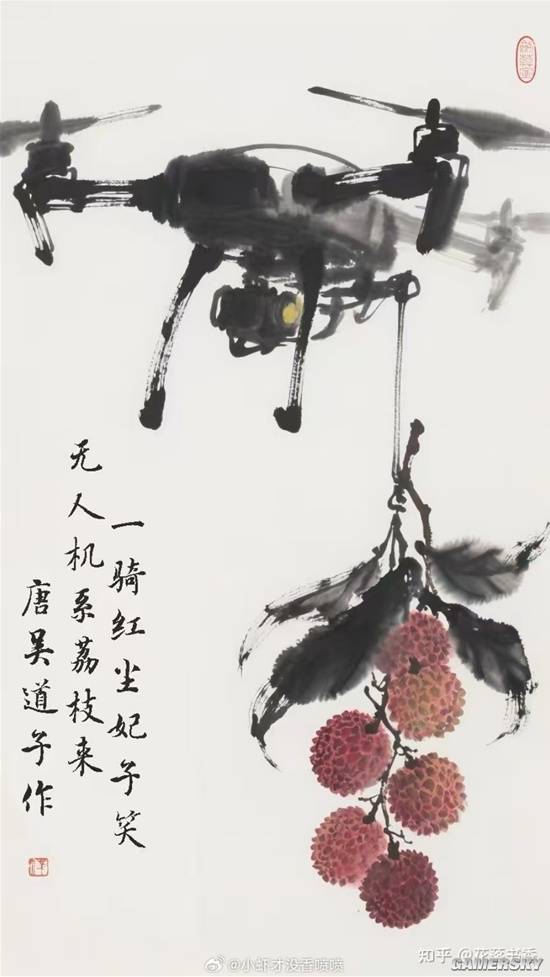 一骑红尘妃子笑
无人机系荔枝来
唐吴道子作
@小虾才没香喷喷
知乎 @花蕊书香
GAMERSKY